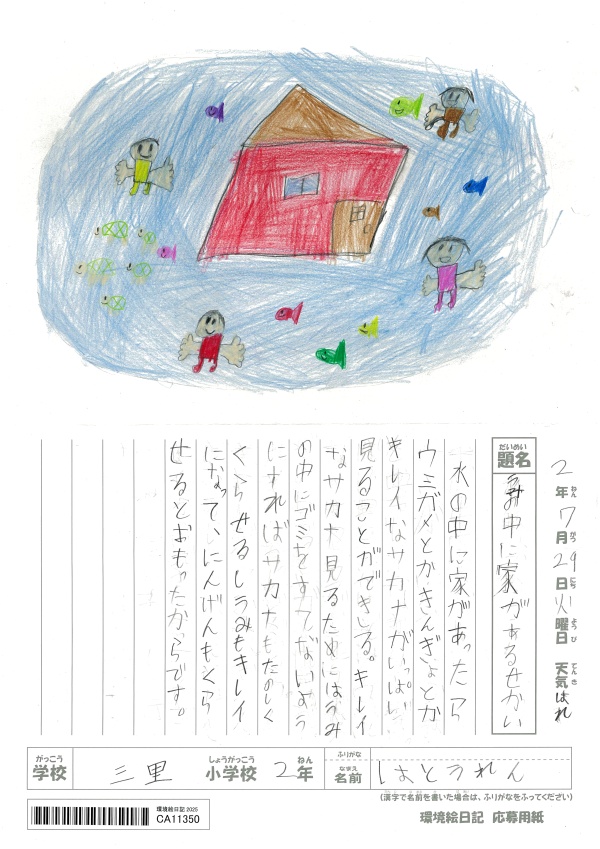 2年7月29日火曜日 天気はれ
ねん がつ にち ようび てんき
だいめい
題名
うみ中に家があるせかい
水の中に家があったら
ウミガメとかきんぎょとか
キレイなサカナがいっぱい
見ることができる。キレイ
なサカナ見るためにはうみ
の中にゴミをすてないよう
にすればサカナもたのしく
くらせるしうみもキレイ
になって、にんげんもくら
せるとおもったからです。
がっこう
学校
三里
しょうがっこう
小学校
2年
ねん
ふりがな
なまえ
名前
はとうれん
(漢字で名前を書いた場合は、ふりがなをふってください)
環境絵日記 2025
CA11350
環境絵日記 応募用紙